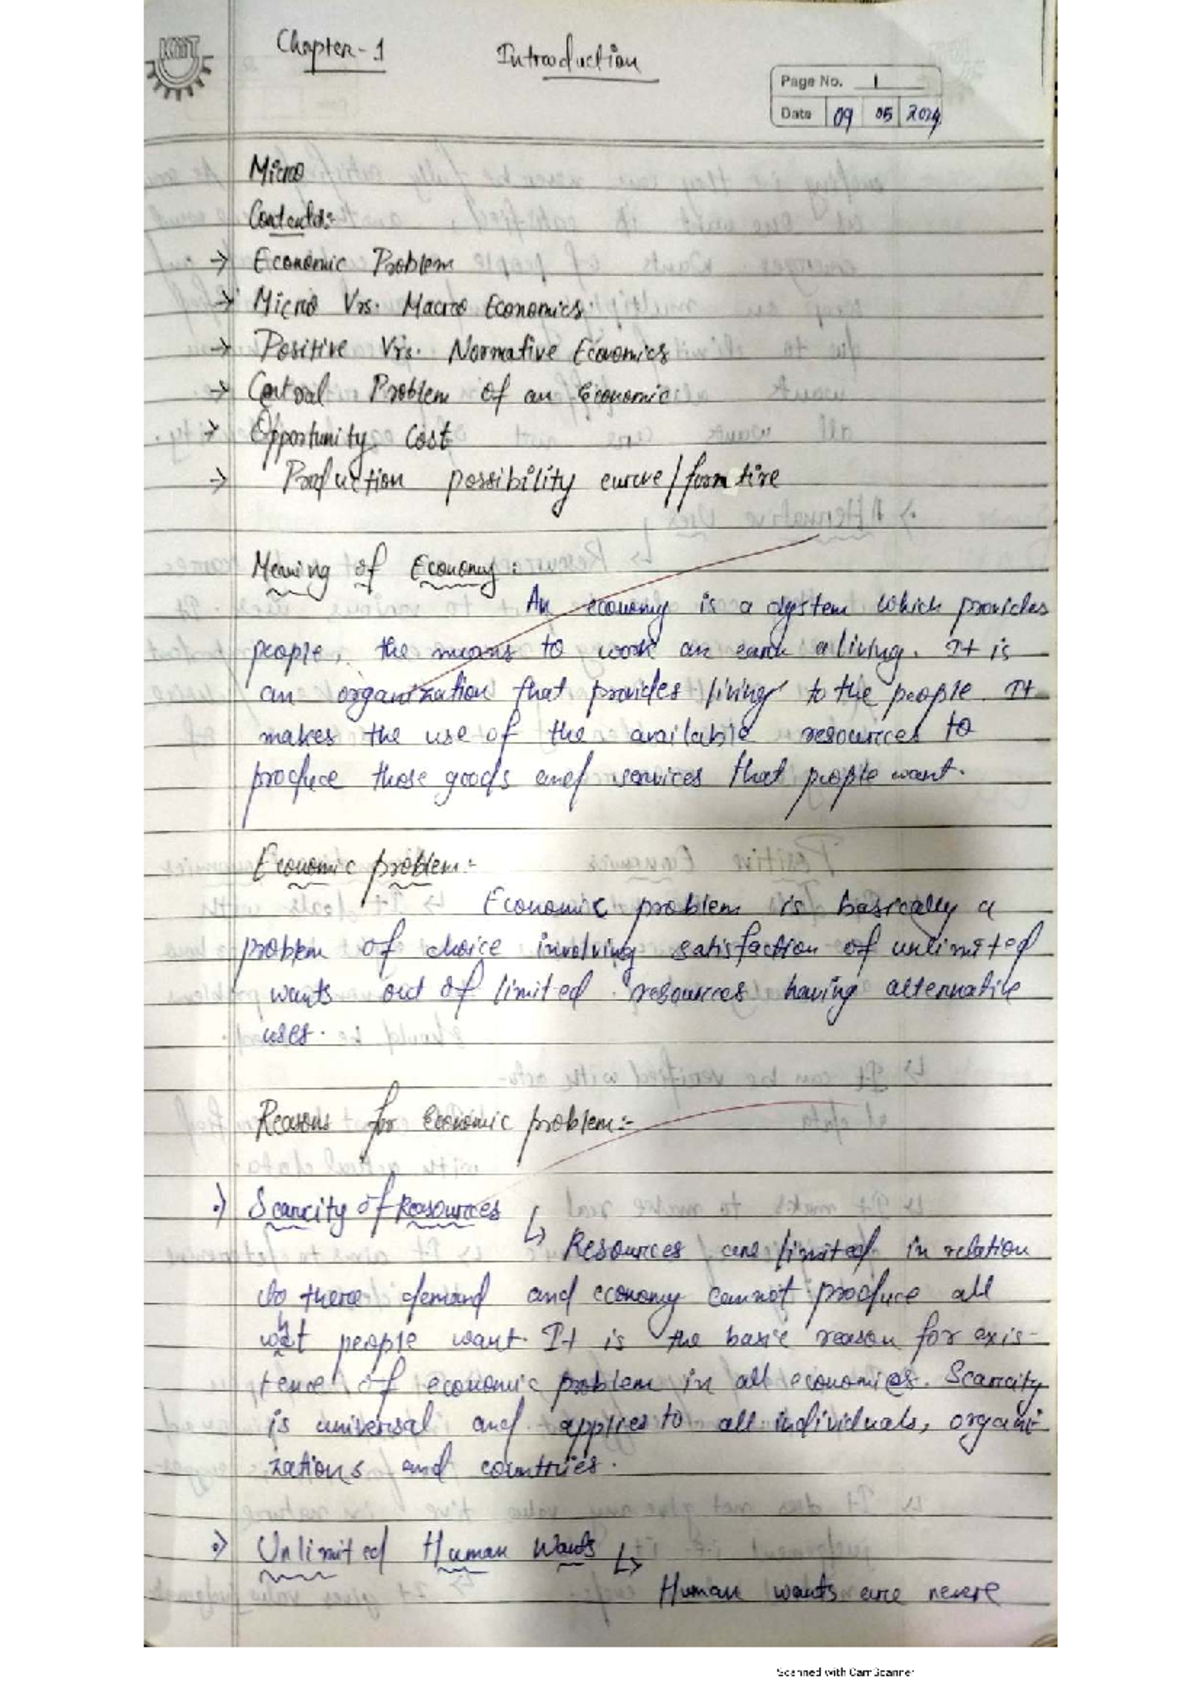 KIIT
Chapter-1 Introduction
Page No. 1
Date 09 05 2024
Micro
Contents:-
→ Economic Problem
→ Micro Vrs. Macro Economics.
→ Positive Vrs. Normative Economics
→ Central Problem of an Economic
→ Opportunity Cost
→ Production possibility curve/
Meaning of Economy:
An economy is a system which provides
people, the means to work an earn a living. It is
an organization that provides living to the people. It
makes the use of the available resources to
produce those goods and services that people want.
Economic problem:-
Economic problem is basically a
problem of choice involving satisfaction of unlimited
wants out of limited resources having alternative
uses.
Reasons for Economic problem:-
•) Scarcity of Resources ↳
Resources are limited in relation
to there demand and economy cannot produce all
what people want. It is the basic reason for exis-
tence of economic problem in all economies. Scarcity
is universal and applies to all individuals, organi-
zations and countries.
•) Unlimited Human Wants ↳
Human wants are nevere
Scanned with CamScanner